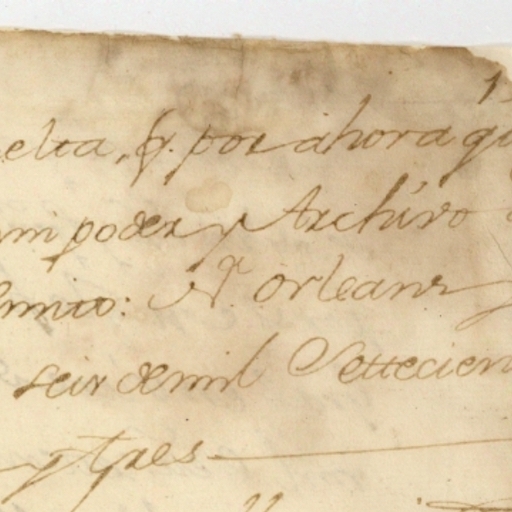 elta, q.e por ahora qu
mi poder y Archivo
mito: Na Orleans
seis de mil Settecien
y tres